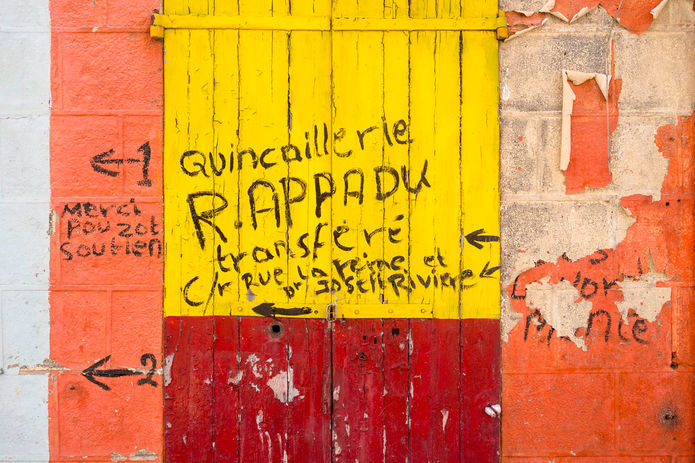 1
Merci
Pouzot
Soutien
Quincaillerie
R.APPADU
transféré
C/r Rue la reine et
Dr Joseh Rivière
2